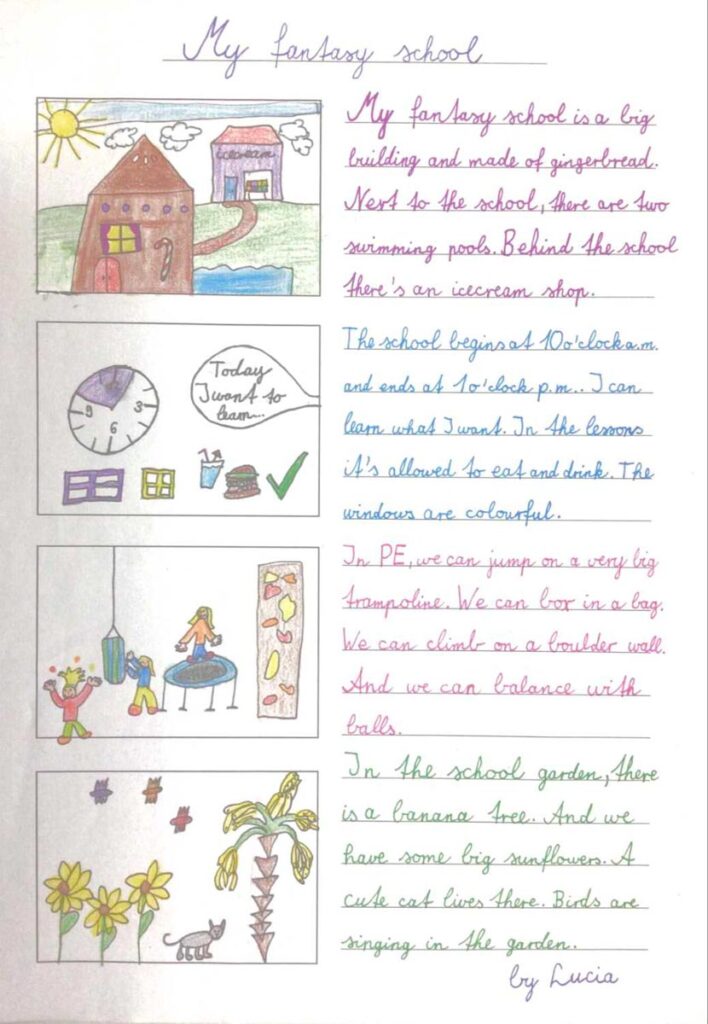 My fantasy school
icecream
My fantasy school is a big
building and made of gingerbread.
Next to the school, there are two
swimming pools. Behind the school
there's an icecream shop.
Today
I want to
learn...
9
3
6
The school begins at 10 o'clock a.m.
and ends at 1 o'clock p.m.. I can
learn what I want. In the lessons
it's allowed to eat and drink. The
windows are colourful.
In PE, we can jump on a very big
trampoline. We can box in a bag.
We can climb on a boulder wall.
And we can balance with
balls.
In the school garden, there
is a banana tree. And we
have some big sunflowers. A
cute cat lives there. Birds are
singing in the garden.
by Lucia